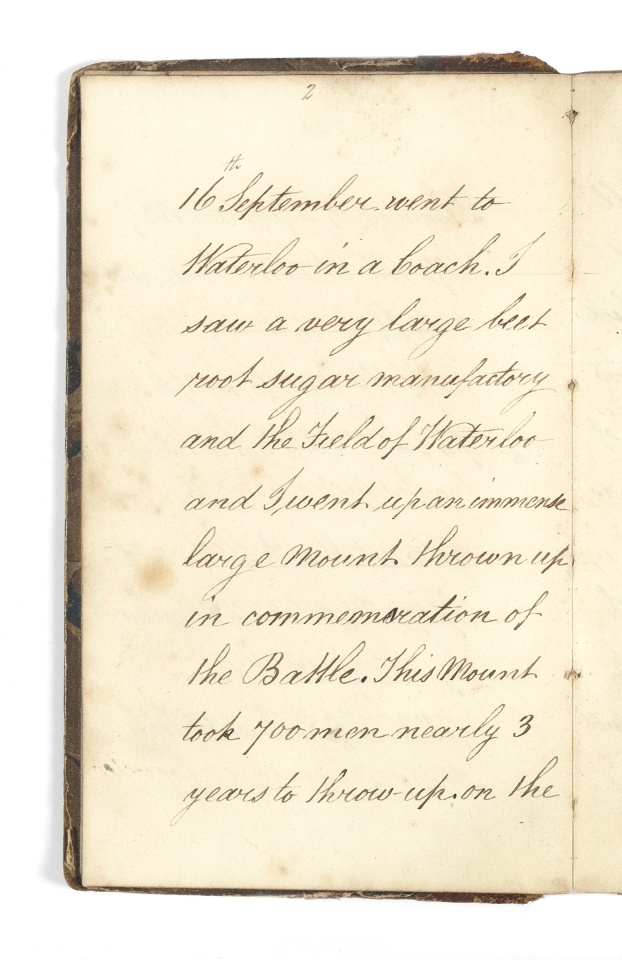 2
16th September went to
Waterloo in a Coach. I
saw a very large beet
root sugar manufactory
and the Field of Waterloo
and I went up an immense
large Mount thrown up
in commemoration of
the Battle. This Mount
took 700 men nearly 3
years to throw up. on the